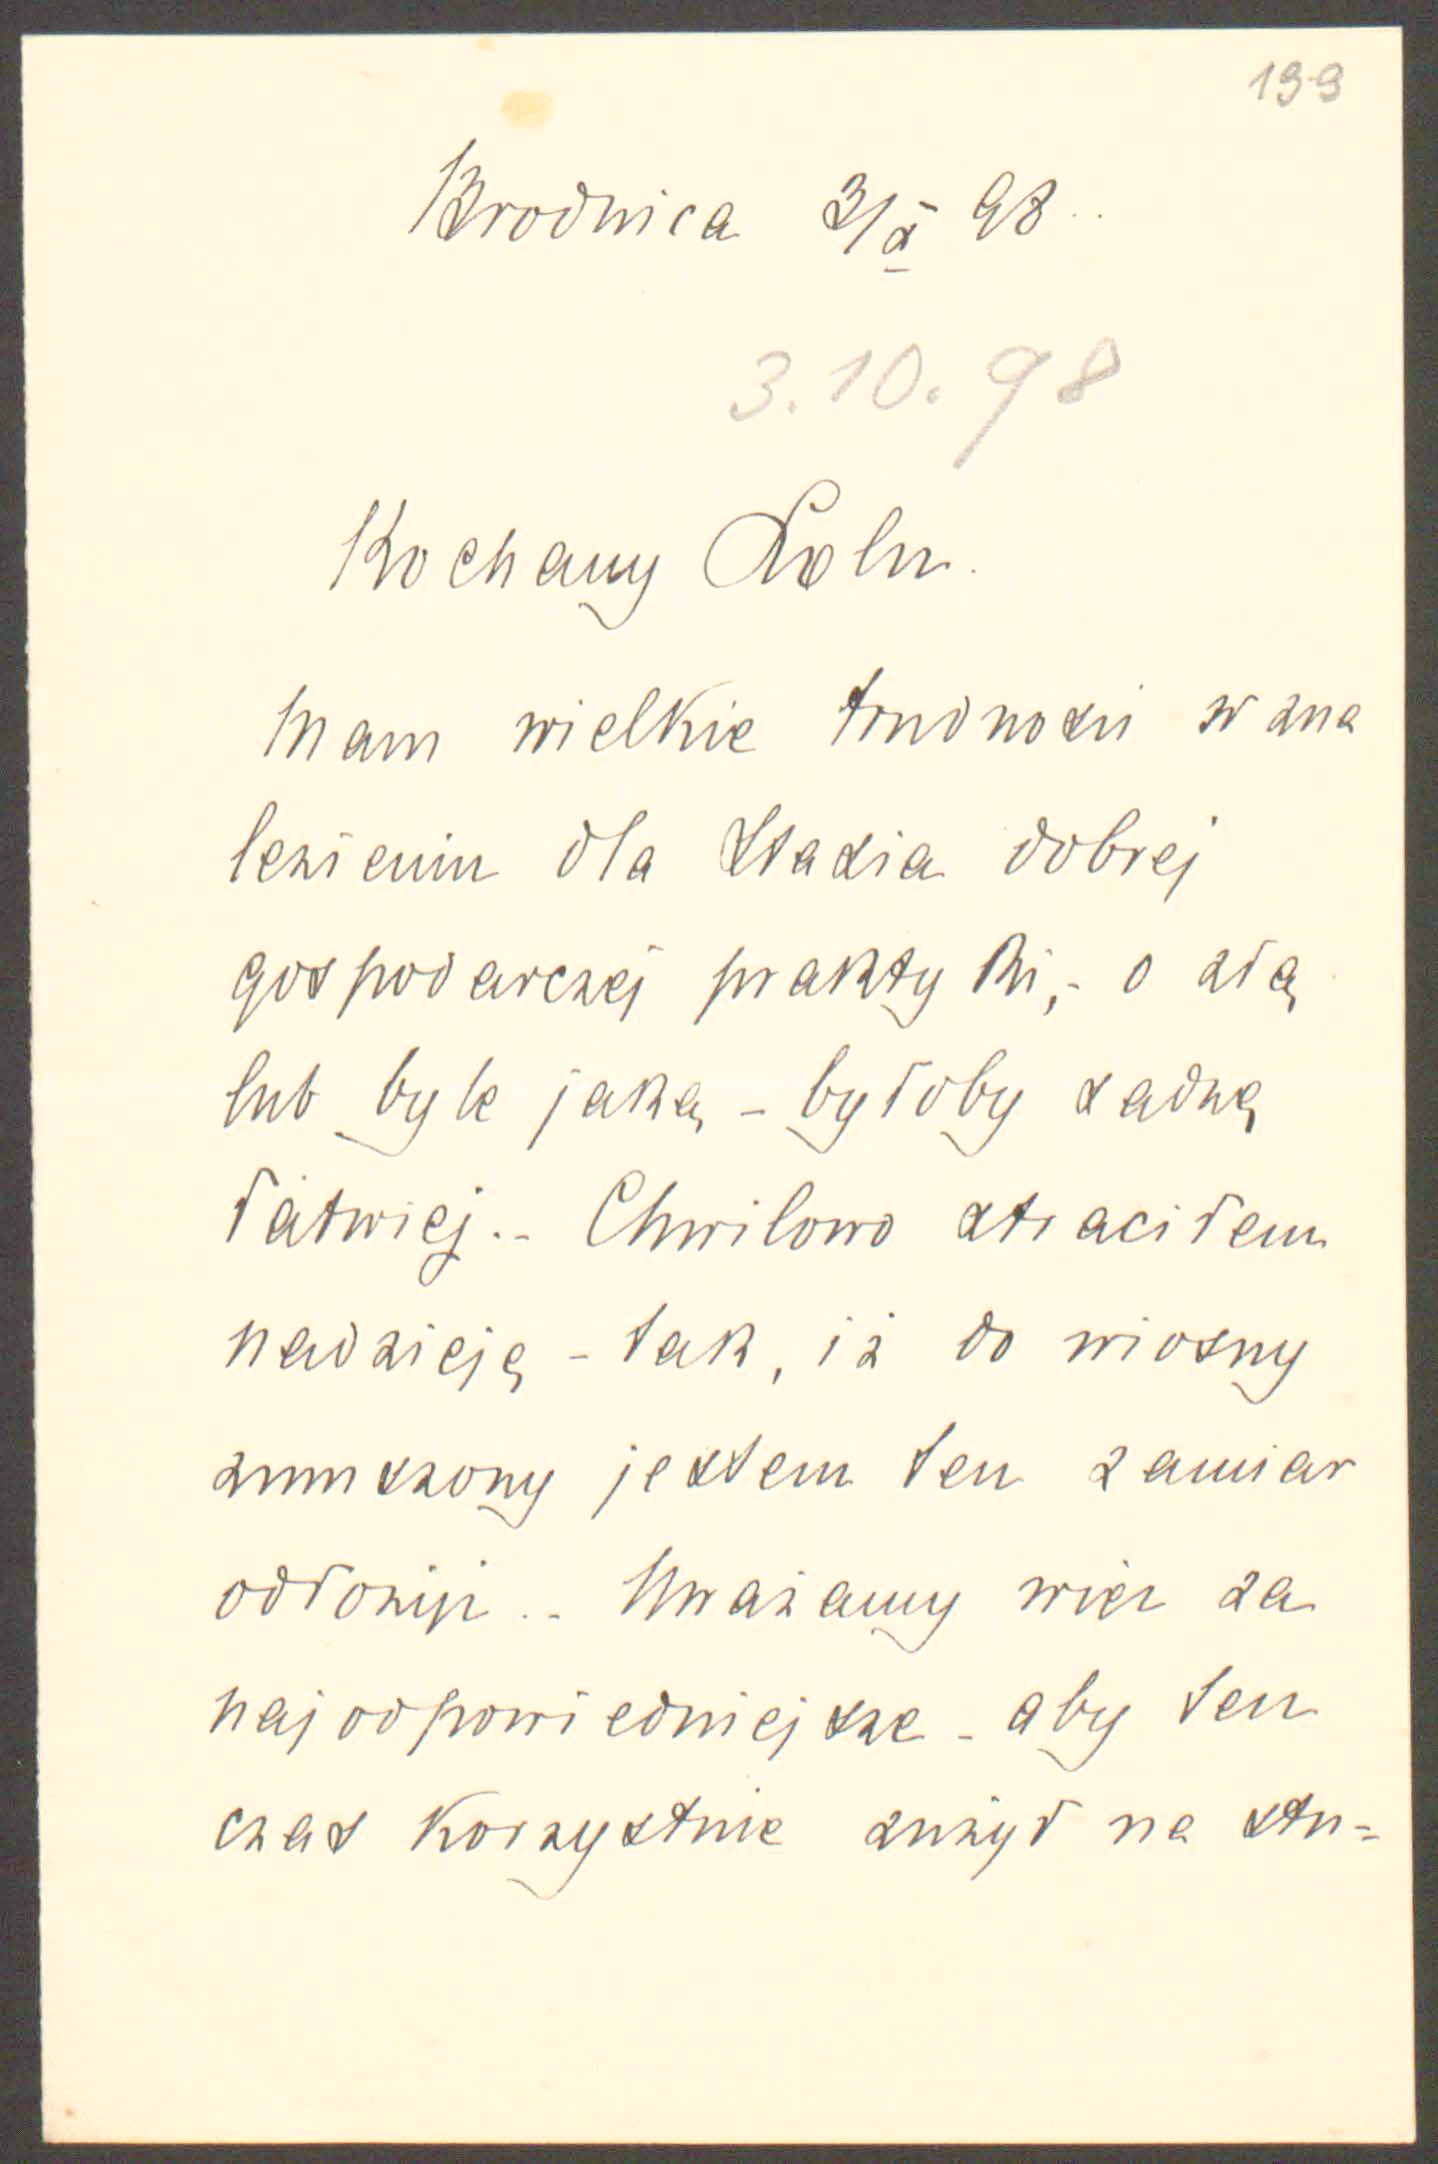 199
Brodnica 3/X 98.
3.10.98
Kochany Lolu.
Mam wielkie trudności w zna
lezieniu dla Stasia dobrej
gospodarczej praktyki,- o złą
lub byle jaką - byłoby sadzę
łatwiej.- Chwilowo straciłem
nadzieję - tak, iż do wiosny
zmuszony jestem ten zamiar
odłożyć.- Uważamy więc za
najodpowiedniejsze - aby ten
czas korzystnie zużył na stu=